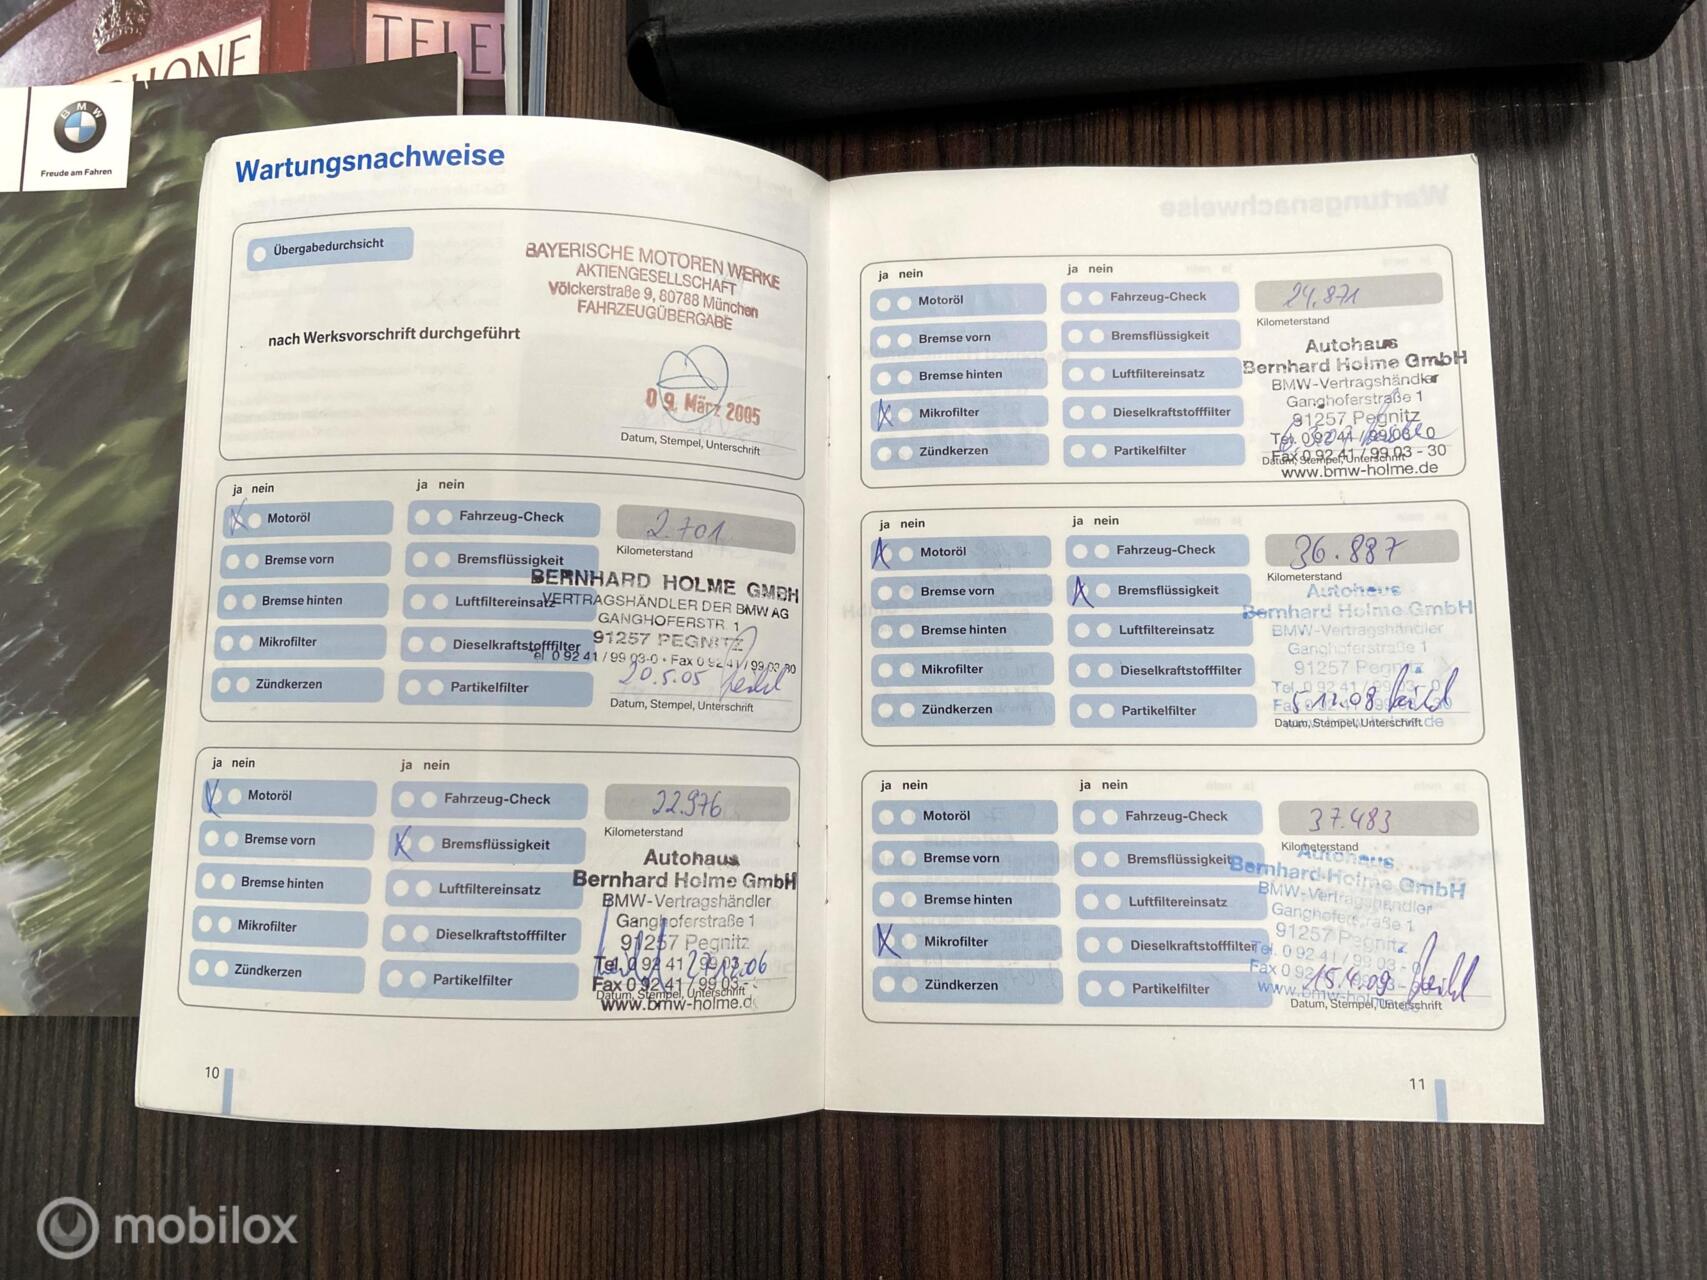 PHONE
TELE
BMW
Freude am Fahren
Wartungsnachweise
Übergabedurchsicht
nach Werksvorschrift durchgeführt
BAYERISCHE MOTOREN WERKE
AKTIENGESELLSCHAFT
Völckerstraße 9, 80788 München
FAHRZEUGÜBERGABE
09. März 2005
Datum, Stempel, Unterschrift
ja nein
ja nein
Motoröl
Fahrzeug-Check
2.701
Kilometerstand
Bremse vorn
Bremsflüssigkeit
Bremse hinten
Luftfiltereinsatz
Mikrofilter
Dieselkraftstofffilter
Zündkerzen
Partikelfilter
BERNHARD HOLME GMBH
VERTRAGSHÄNDLER DER BMW AG
GANGHOFERSTR. 1
91257 PEGNITZ
Tel 0 92 41 / 99 03-0 • Fax 0 92 41 / 99 03 30
20.5.05
Datum, Stempel, Unterschrift
ja nein
ja nein
Motoröl
Fahrzeug-Check
22.976
Kilometerstand
Bremse vorn
Bremsflüssigkeit
Bremse hinten
Luftfiltereinsatz
Mikrofilter
Dieselkraftstofffilter
Zündkerzen
Partikelfilter
Autohaus
Bernhard Holme GmbH
BMW-Vertragshändler
Ganghoferstraße 1
91257 Pegnitz
Tel. 0 92 41 / 99 03 -
Fax 0 92 41 / 99 03 -
www.bmw-holme.de
Datum, Stempel, Unterschrift
10
ja nein
ja nein
Motoröl
Fahrzeug-Check
24.871
Kilometerstand
Bremse vorn
Bremsflüssigkeit
Bremse hinten
Luftfiltereinsatz
Mikrofilter
Dieselkraftstofffilter
Zündkerzen
Partikelfilter
Autohaus
Bernhard Holme GmbH
BMW-Vertragshändler
Ganghoferstraße 1
91257 Pegnitz
Tel. 0 92 41 / 99 03 - 0
Fax 0 92 41 / 99 03 - 30
www.bmw-holme.de
Datum, Stempel, Unterschrift
ja nein
ja nein
Motoröl
Fahrzeug-Check
36.887
Kilometerstand
Bremse vorn
Bremsflüssigkeit
Bremse hinten
Luftfiltereinsatz
Mikrofilter
Dieselkraftstofffilter
Zündkerzen
Partikelfilter
Autohaus
Bernhard Holme GmbH
BMW-Vertragshändler
Ganghoferstraße 1
91257 Pegnitz
Tel. 0 92 41 / 99 03 - 0
5.12.08
Datum, Stempel, Unterschrift
ja nein
ja nein
Motoröl
Fahrzeug-Check
37.483
Kilometerstand
Bremse vorn
Bremsflüssigkeit
Bremse hinten
Luftfiltereinsatz
Mikrofilter
Dieselkraftstofffilter
Zündkerzen
Partikelfilter
Autohaus
Bernhard Holme GmbH
BMW-Vertragshändler
Ganghoferstraße 1
91257 Pegnitz
Tel. 0 92 41 / 99 03 - 0
15.4.09
Datum, Stempel, Unterschrift
11
mobilox